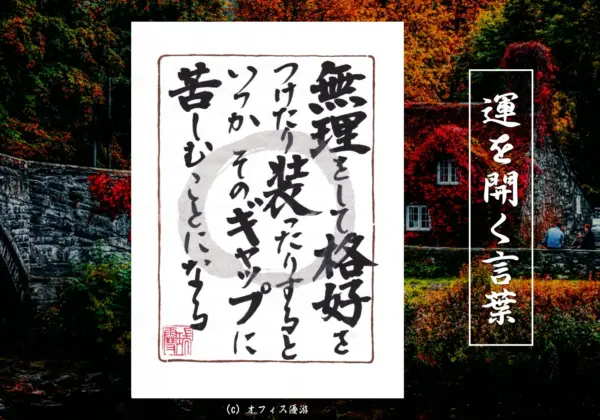 運を開く言葉
無理をして格好を
つけたり装ったりすると
いつか そのギャップに
苦しむことになる
(C) オフィス優游